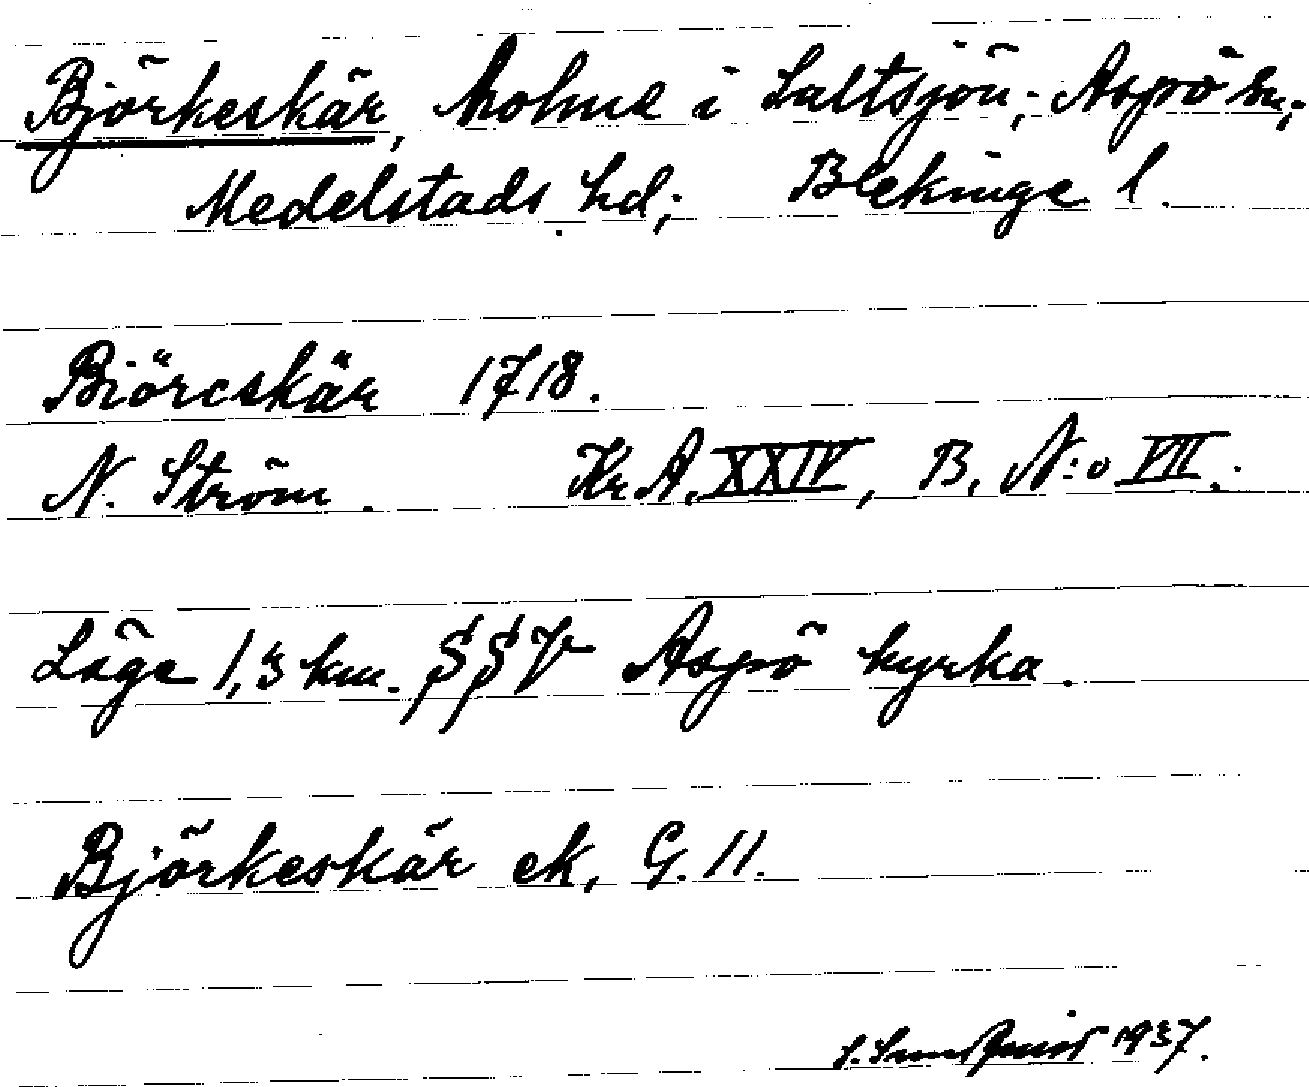 Björkeskär, holme i Saltsjön; Aspö sn;
Medelstads hd; Blekinge l.
Biörcskär 1718.
N. Ström. Kr.A. XXIV, B, N:o VII.
Läge 1,3 km. SSV Aspö kyrka.
Björkeskär ek, G. 11.
1937.